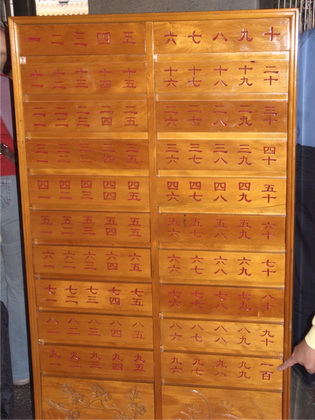 一 二 三 四 五 六 七 八 九 十
十一 十二 十三 十四 十五 十六 十七 十八 十九 二十
二一 二二 二三 二四 二五 二六 二七 二八 二九 三十
三一 三二 三三 三四 三五 三六 三七 三八 三九 四十
四一 四二 四三 四四 四五 四六 四七 四八 四九 五十
五一 五二 五三 五四 五五 五六 五七 五八 五九 六十
六一 六二 六三 六四 六五 六六 六七 六八 六九 七十
七一 七二 七三 七四 七五 七六 七七 七八 七九 八十
八一 八二 八三 八四 八五 八六 八七 八八 八九 九十
九一 九二 九三 九四 九五 九六 九七 九八 九九 一百